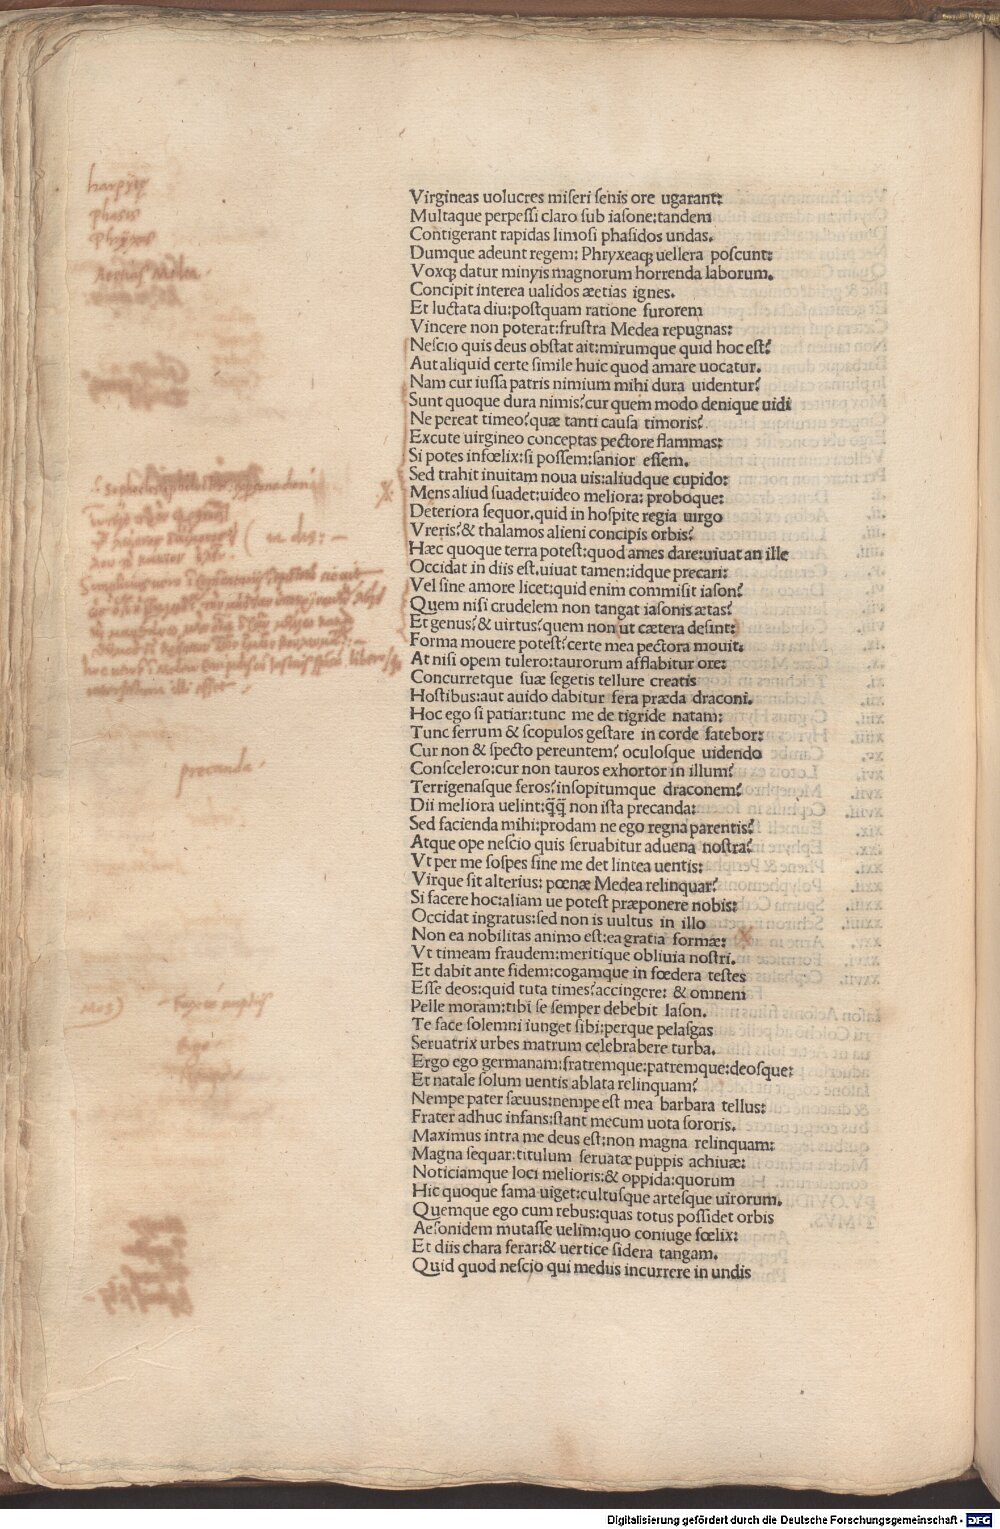 harpyię
phasis
Phryxus
Aetias Medea
Virgineas uolucres miseri senis ore ugarant:
Multaque perpessi claro sub iasone:tandem
Contigerant rapidas limosi phasidos undas.
Dumque adeunt regem: Phryxeaqʒ uellera poscunt:
Voxqʒ datur minyis magnorum horrenda laborum.
Concipit interea ualidos æetias ignes.
Et luctata diu:postquam ratione furorem
Vincere non poterat:frustra Medea repugnas:
Nescio quis deus obstat ait:mirumque quid hoc est?
Aut aliquid certe simile huic quod amare uocatur.
Nam cur iussa patris nimium mihi dura uidentur?
Sunt quoque dura nimis?cur quem modo denique uidi
Ne pereat timeo?quæ tanti causa timoris?
Excute uirgineo conceptas pectore flammas:
Si potes infœlix:si possem:sanior essem.
Sed trahit inuitam noua uis:aliudque cupido:
Mens aliud suadet:uideo meliora: proboque:
Deteriora sequor.quid in hospite regia uirgo
Vreris?& thalamos alieni concipis orbis?
Hæc quoque terra potest:quod ames dare:uiuat an ille
Occidat in diis est.uiuat tamen:idque precari:
Vel sine amore licet:quid enim commisit iason?
Quem nisi crudelem non tangat iasonis ætas?
Et genus?& uirtus?quem non ut cætera desint:
Forma mouere potest?certe mea pectora mouit.
At nisi opem tulero:taurorum afflabitur ore:
Concurretque suæ segetis tellure creatis
Hostibus:aut auido dabitur fera præda draconi.
Hoc ego si patiar:tunc me de tigride natam:
Tunc ferrum & scopulos gestare in corde fatebor:
Cur non & specto pereuntem? oculosque uidendo
Conscelero:cur non tauros exhortor in illum?
precanda
Terrigenasque feros?insopitumque draconem?
Dii meliora uelint:q̄q̄ non ista precanda:
Sed facienda mihi:prodam ne ego regna parentis?
Atque ope nescio quis seruabitur aduena nostra?
Vt per me sospes sine me det lintea uentis:
Virque sit alterius: pœnæ Medea relinquar?
Si facere hoc:aliam ue potest præponere nobis:
Occidat ingratus:sed non is uultus in illo
Non ea nobilitas animo est:ea gratia formæ:
Vt timeam fraudem:meritique obliuia nostri.
Et dabit ante fidem:cogamque in fœdera testes
Esse deos:quid tuta times?accingere: & omnem
Pelle moram:tibi se semper debebit Iason.
Te face solemni iunget sibi:perque pelasgas
Seruatrix urbes matrum celebrabere turba.
Ergo ego germanam:fratremque:patremque:deosque:
Et natale solum uentis ablata relinquam?
Nempe pater sæuus:nempe est mea barbara tellus:
Frater adhuc infans:stant mecum uota sororis.
Maximus intra me deus est:non magna relinquam:
Magna sequar:titulum seruatæ puppis achiuæ:
Noticiamque loci melioris:& oppida:quorum
Hic quoque fama uiget:cultusque artesque uirorum.
Quemque ego cum rebus:quas totus possidet orbis
Aesonidem mutasse uelim:quo coniuge fœlix:
Et diis chara ferar:& uertice sidera tangam.
Quid quod nescio qui medus incurrere in undis
Digitalisierung gefördert durch die Deutsche Forschungsgemeinschaft - DFG